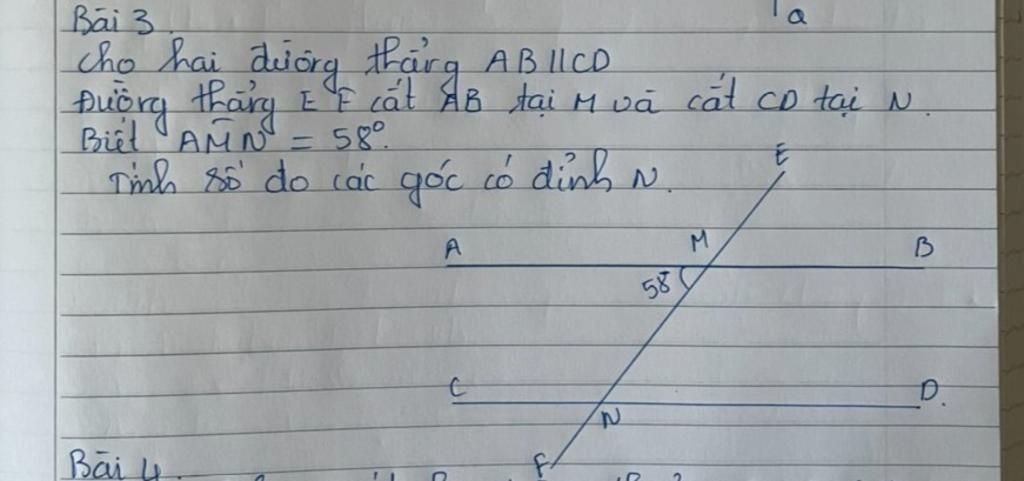 a
Bài 3.
Cho hai đường thẳng AB//CD
Đường thẳng EF cắt AB tại M và cắt CD tại N.
Biết AMN = 58°.
Tính số đo các góc có đỉnh N.
E
A M B
58
C D.
N
F
Bài 4.